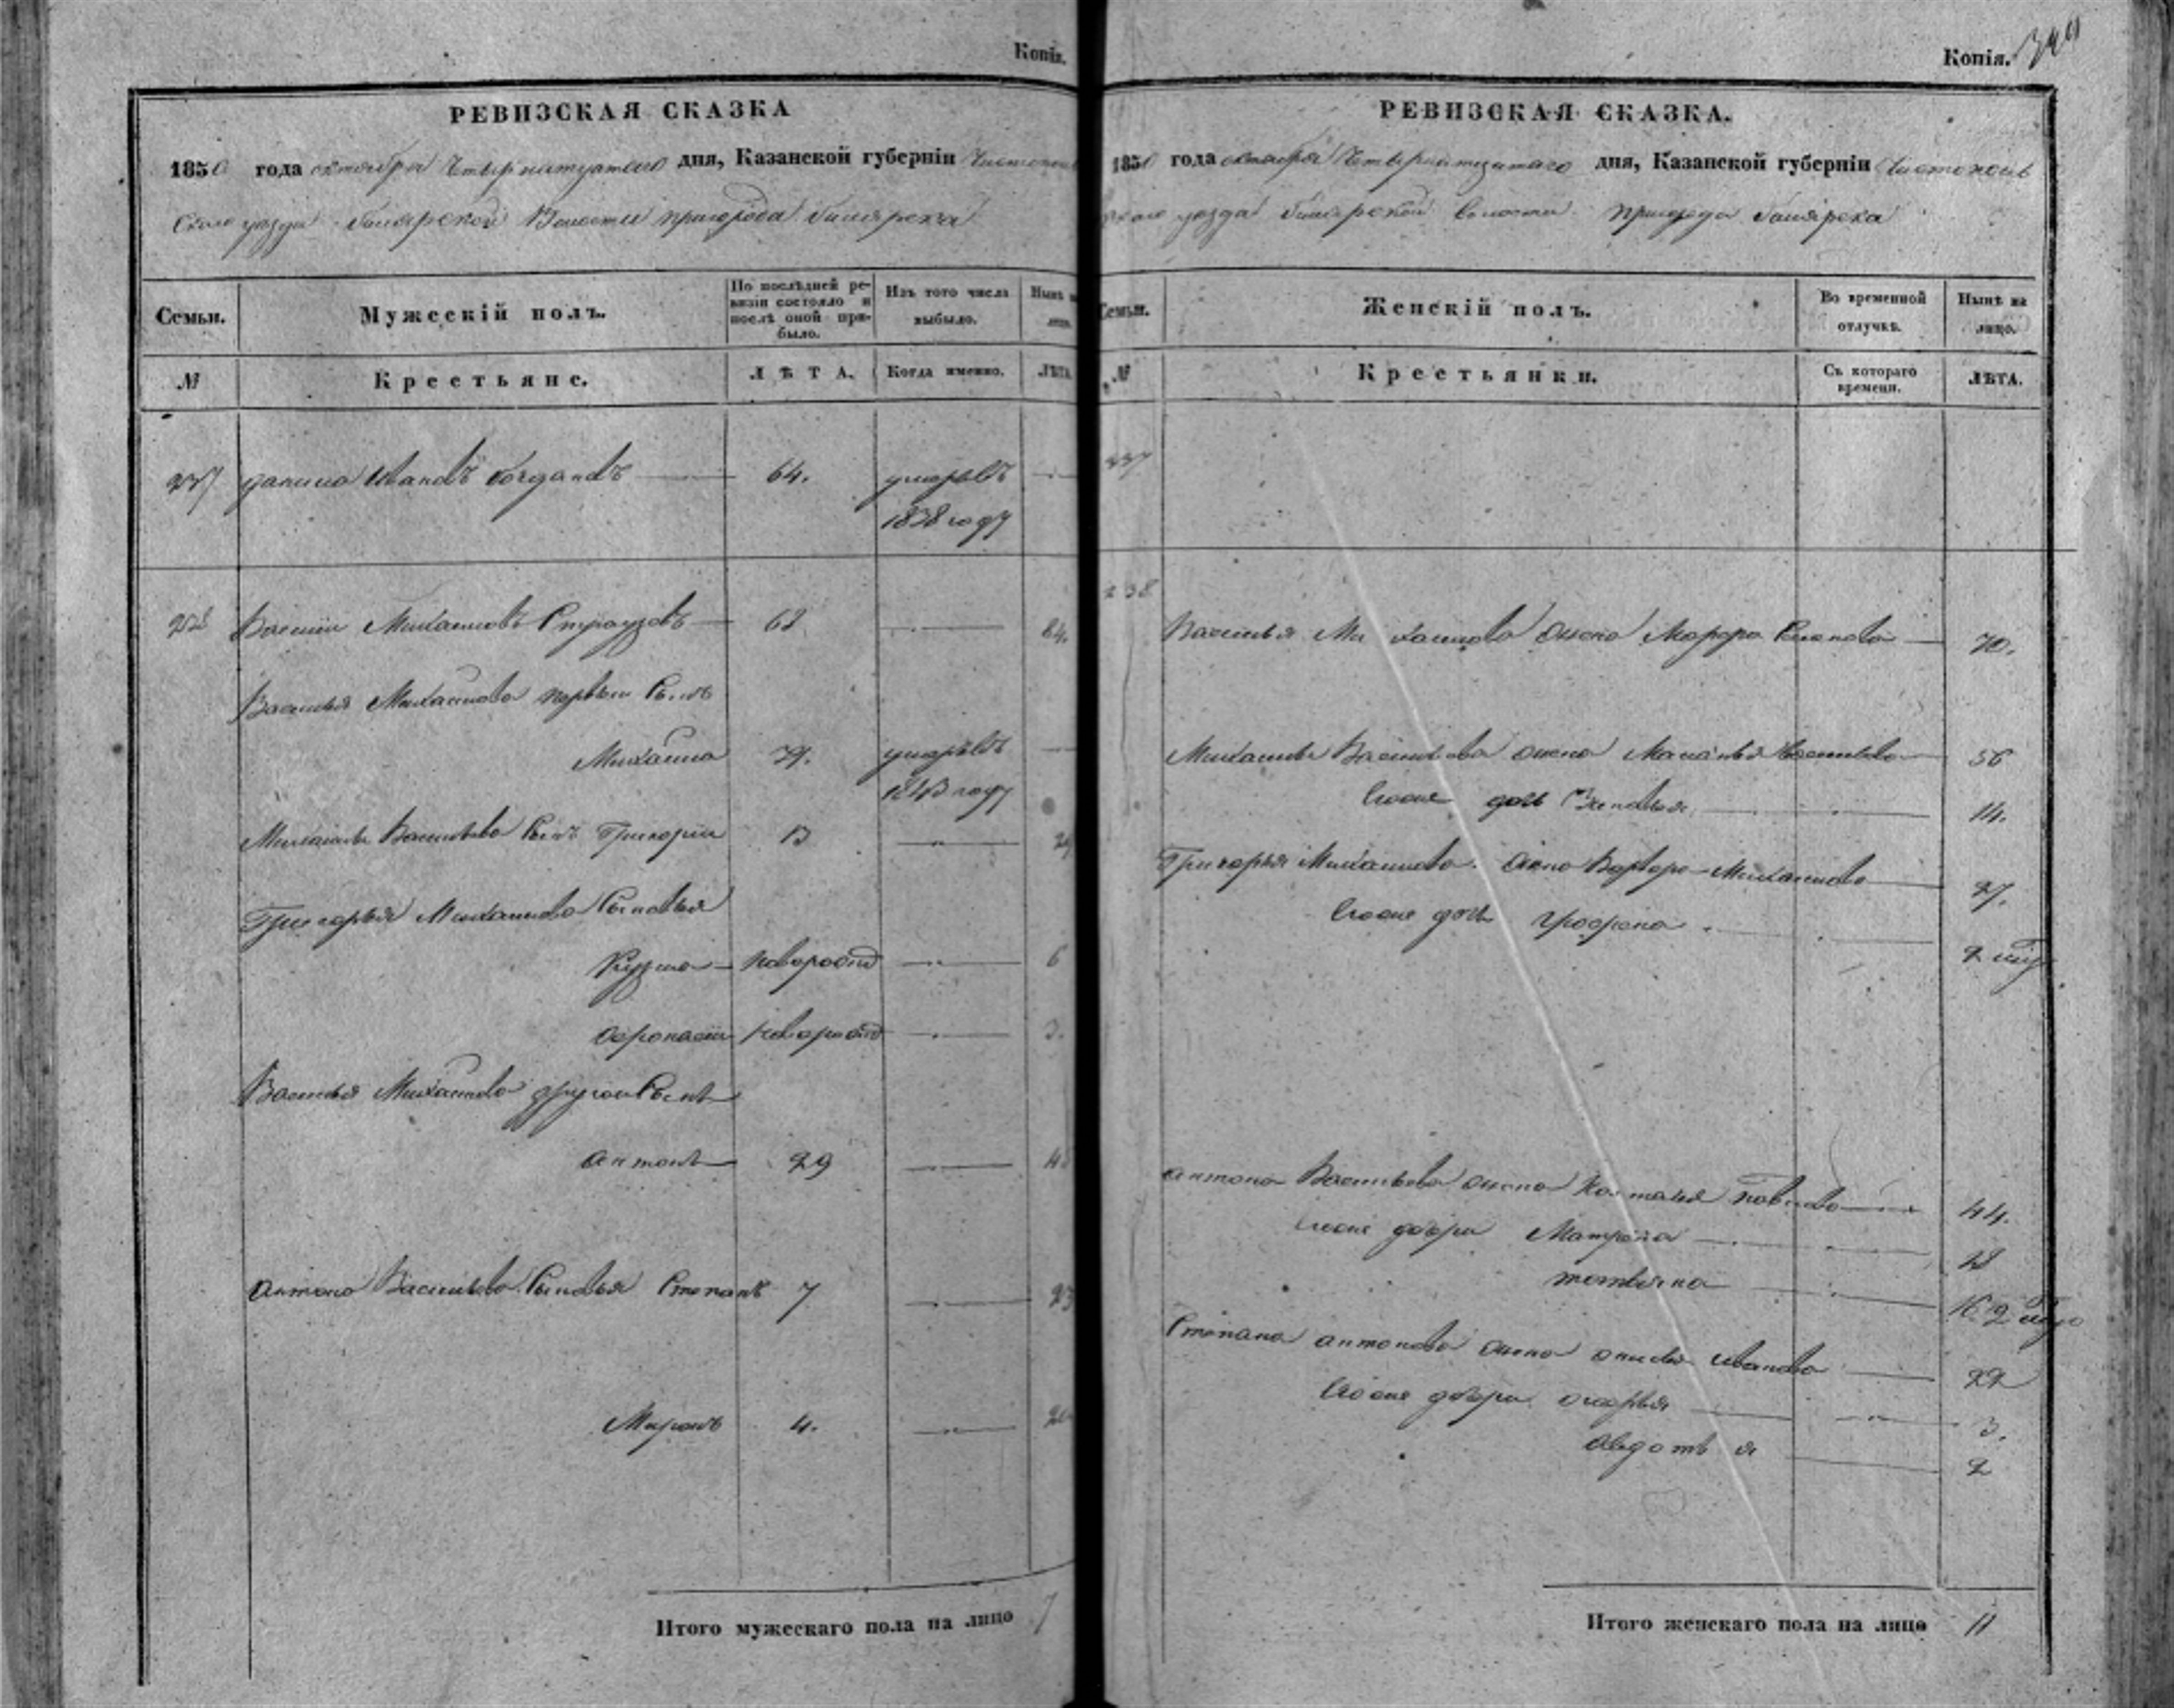 Копія.
РЕВИЗСКАЯ СКАЗКА
1850 года октября Четырнатцатаго дня, Казанской губерніи Чистополь
скаго уезда Билярской Волости пригорода Билярска
Семьи.
Мужескій полъ.
По послѣдней ревизіи состояло и послѣ оной прибыло.
Изъ того числа выбыло.
Нынѣ на лицо.
№
Крестьяне.
ЛѢТА.
Когда именно.
ЛѢТА.
237 Данила Ивановъ 64. умеръ въ
1838 году
238 Василий Михайловъ 68 84.
Василья Михайлова первый Сынъ
Михаила умеръ въ
1843 году
Михаила Васильева Сынъ Григорий 13 29
Григорья Михайлова Сыновья
Кузма новорожд 6
Афонасий новорожд 3.
Василья Михайлова другой Сынъ
Антонъ 29 45
Антона Васильева Сыновья Степанъ 7 23
Миронъ 4. 20
Итого мужескаго пола на лицо 7
Копія.
РЕВИЗСКАЯ СКАЗКА.
1850 года октября Четырнатцатаго дня, Казанской губерніи Чистополь
скаго уезда Билярской волости пригорода Билярска
Семьи.
Женскій полъ.
Во временной отлучкѣ.
Нынѣ на лицо.
№
Крестьянки.
Съ котораго времени.
ЛѢТА.
237
238
Василья Михайлова жена Марфа 70.
Михаила Васильева жена Маланья Васильева 56
Ево же дочь Зиновья 14.
Григорья Михайлова жена Варвара Михайлова 27.
Ево же дочь 2 мѣ
Антона Васильева жена Наталья Павлова 44.
Ево же дочери Матрена 18
Татьяна 16
Степана Антонова жена Анисья Иванова 22
Ево же дочери Дарья 3.
Авдотья 2
Итого женскаго пола на лицо 11